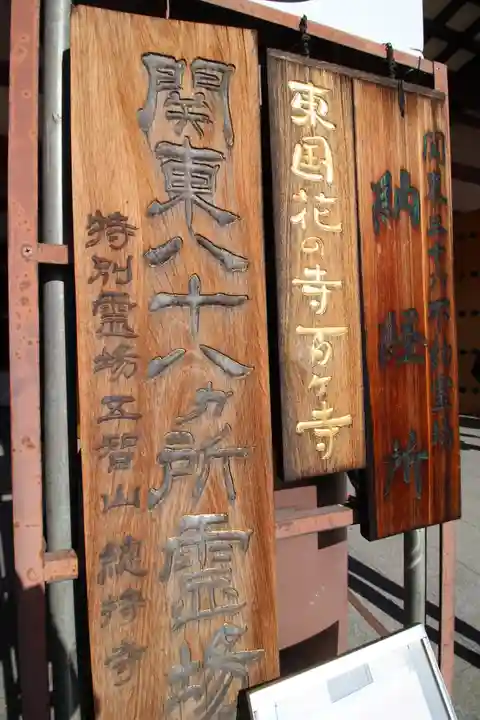 関東三十六不動霊場
納経所
東国花の寺百ヶ寺
関東八十八ヵ所霊場
特別霊場五智山總持寺